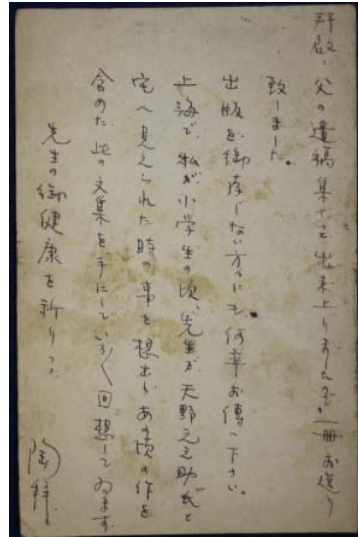 拝啓、父の遺稿集やっと出来上りましたので、一冊お送り
致しました。
出版を御存じない方々にも何卒お傳へ下さい。
上海で、私が小学生の頃、先生が天野元之助氏と
宅へ見えられた時の事を想出し、あの頃の作を
含めた此の文集を手にしていろ〱回想してゐます
先生の御健康を祈りつゝ
陶